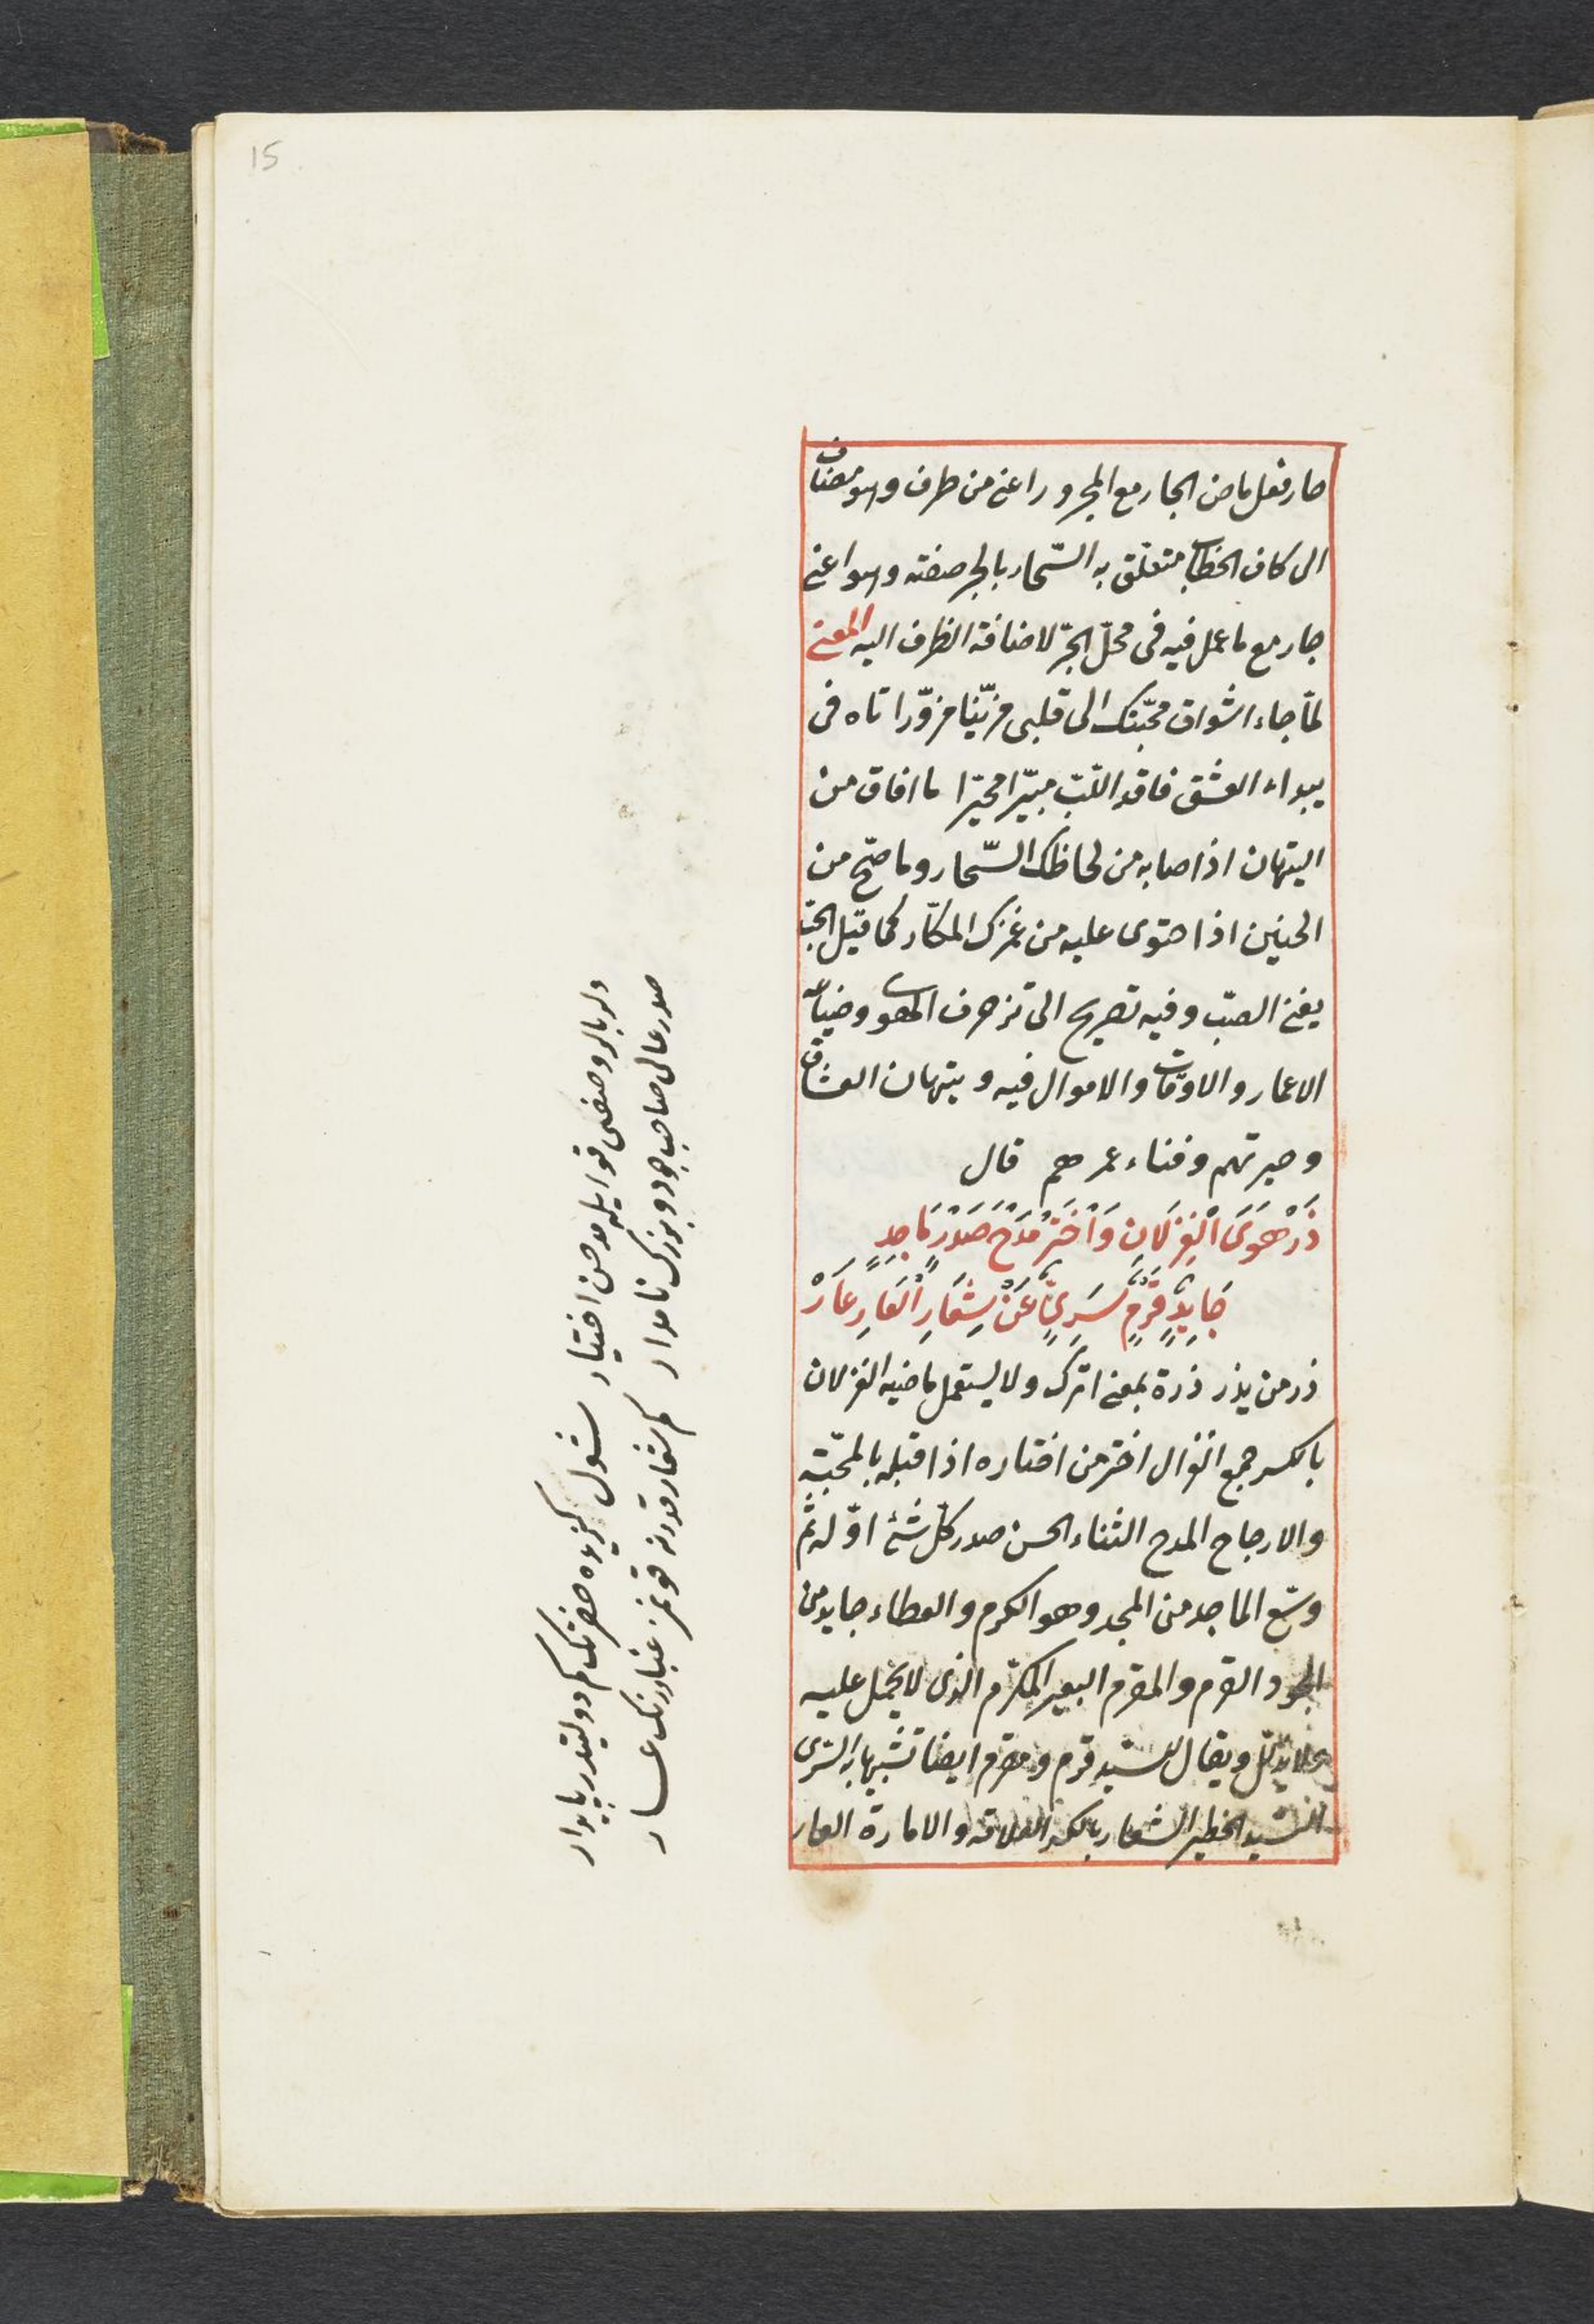 15
صار فعل ماض الجار مع المجرور اعنى من طرف وهو مضاف
الى كاف الخطاب متعلق به السّحار بالجر صفته وهو اعنى
جار مع ما عمل فيه فى محلّ الجرّ لاضافة الظرف اليه المعنى
لمّا جاء اشواق محبّتك الى قلبى مزيّنا مزوّرا تاه فى
بيداء العشق فاقد اللّبّ محيّرا ما افاق من
التيهان اذ اصابه من لحاظك السّحار وما صحّ من
الحنين اذ احتوى عليه من غمزك المكّار كما قيل الحبّ
يفنى الصبّ وفيه تصريح الى تزخرف الهوى وضياعه
الاعمار والاوقات والاموال فيه وتيهان العشاق
وحيرتهم وفناء عمرهم قال
ذَرْ هَوَى الْغِزْلَانِ وَاخْتَرْ مَدْحَ صَدْرٍ مَاجِدٍ
جَايِدٍ قَرْمٍ سَرِيٍّ عَنْ شِعَارِ الْعَارِ عَارْ
ذر من يذر ذرة بمعنى اترك ولا يستعمل ماضيه الغزلان
بالكسر جمع الغزال اختر من اختاره اذا قبله بالمحبّة
والارجاح المدح الثناء الحسن صدر كلّ شئ اوّله ثم
وسّع الماجد من المجد وهو الكرم والعطاء جايد من
الجود القرم والمقرم البعير المكرّم الذى لا يحمل عليه
ولا يذلّل ويقال للسّيد قرم ومقرم ايضا تشبيها به السّرى
السّيد الخطير الشعار بالكسر العلامة والامارة العار
دلبر بالر وصفى قوايله مدحن اختيار شول كزيده حضرتك كم دولتيدر پايدار
صدر عالى صاحب جود و بزرك نامدار كم شعار قدرنه قونمز غبار ننك عــار